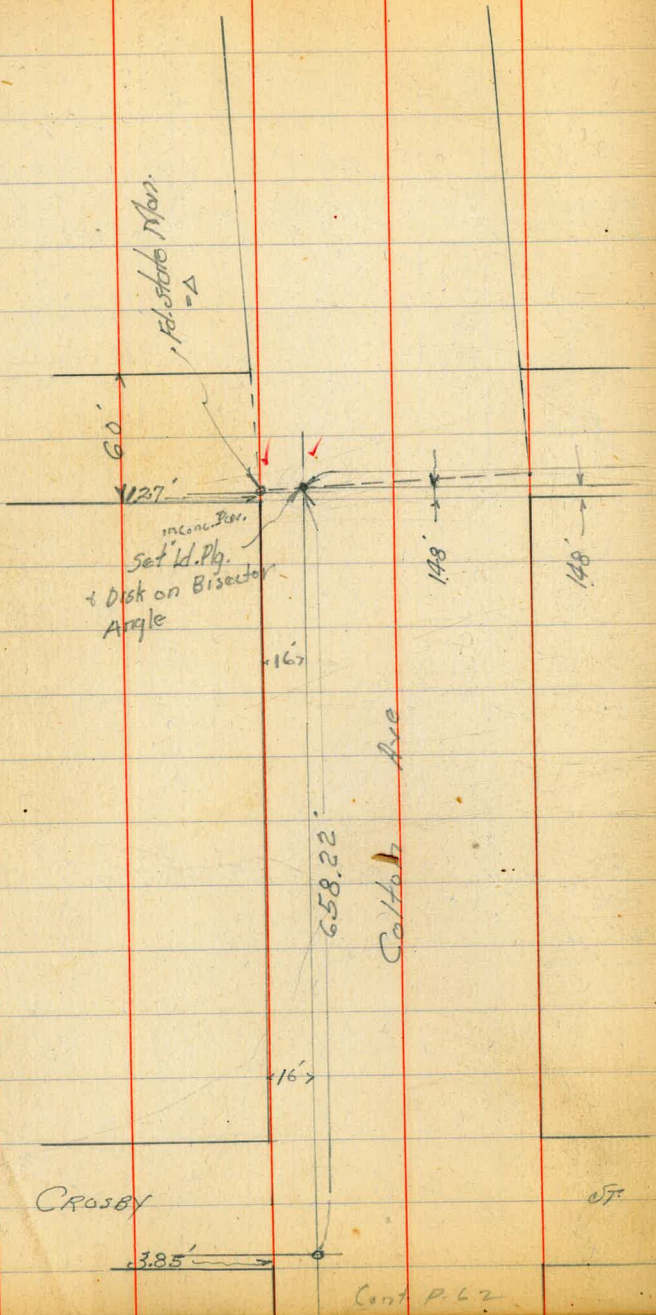 Fd. Stone Mon.
= Δ
60'
1.27'
in Conc. Pav.
Set Ld. Plg.
& Disk on Bisector
Angle
1.48'
1.48'
16'
658.22'
Colton Ave
16'
CROSBY ST.
3.85'
Cont P. 62